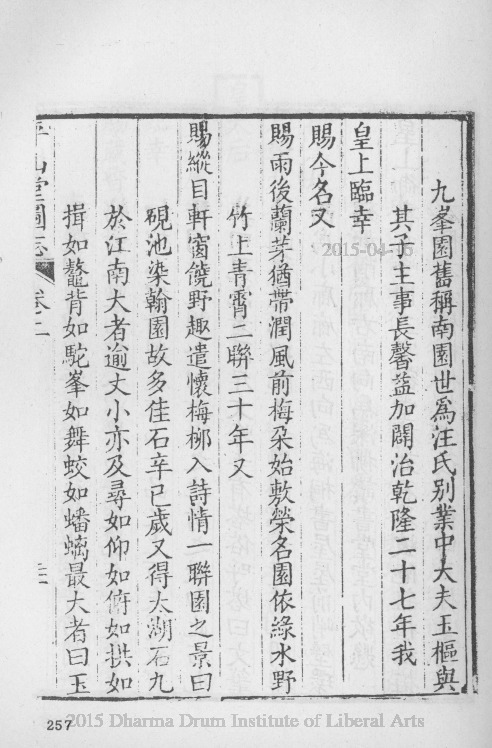 九峯園舊稱南園世爲汪氏別業中大夫玉樞與
其子主事長馨葢加闢治乾隆二十七年我
皇上臨幸
賜今名又
賜雨後蘭芽猶帶潤風前梅朶始敷榮名園依綠水野
竹上青霄二聯三十年又
賜縱目軒窗饒野趣遣懷梅柳入詩情一聯園之景曰
硯池染翰園故多佳石辛巳歲又得太湖石九
於江南大者逾丈小亦及尋如仰如俯如拱如
揖如鼇背如駝峯如舞蛟如蟠螭最大者曰玉
平山堂圖志 卷二
2015-04-16
257
2015 Dharma Drum Institute of Liberal Arts